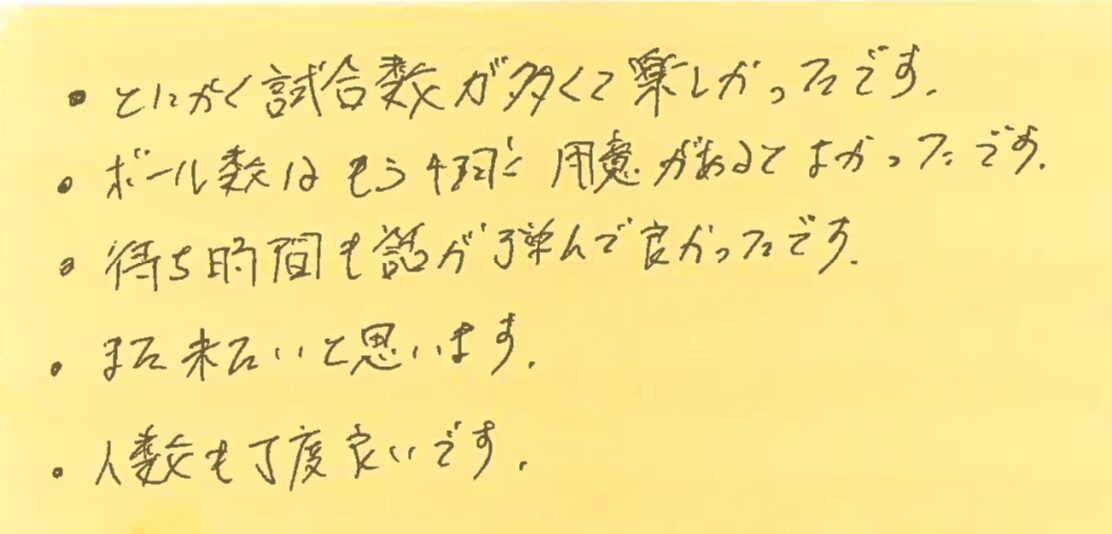 ・とにかく試合数が多くて楽しかったです.
・ボール数はもう 用意があるとよかったです.
・待ち時間も話が弾んで良かったです.
・また来たいと思います.
・人数も丁度良いです.